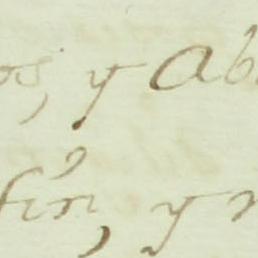 os, y Ab
fin, y